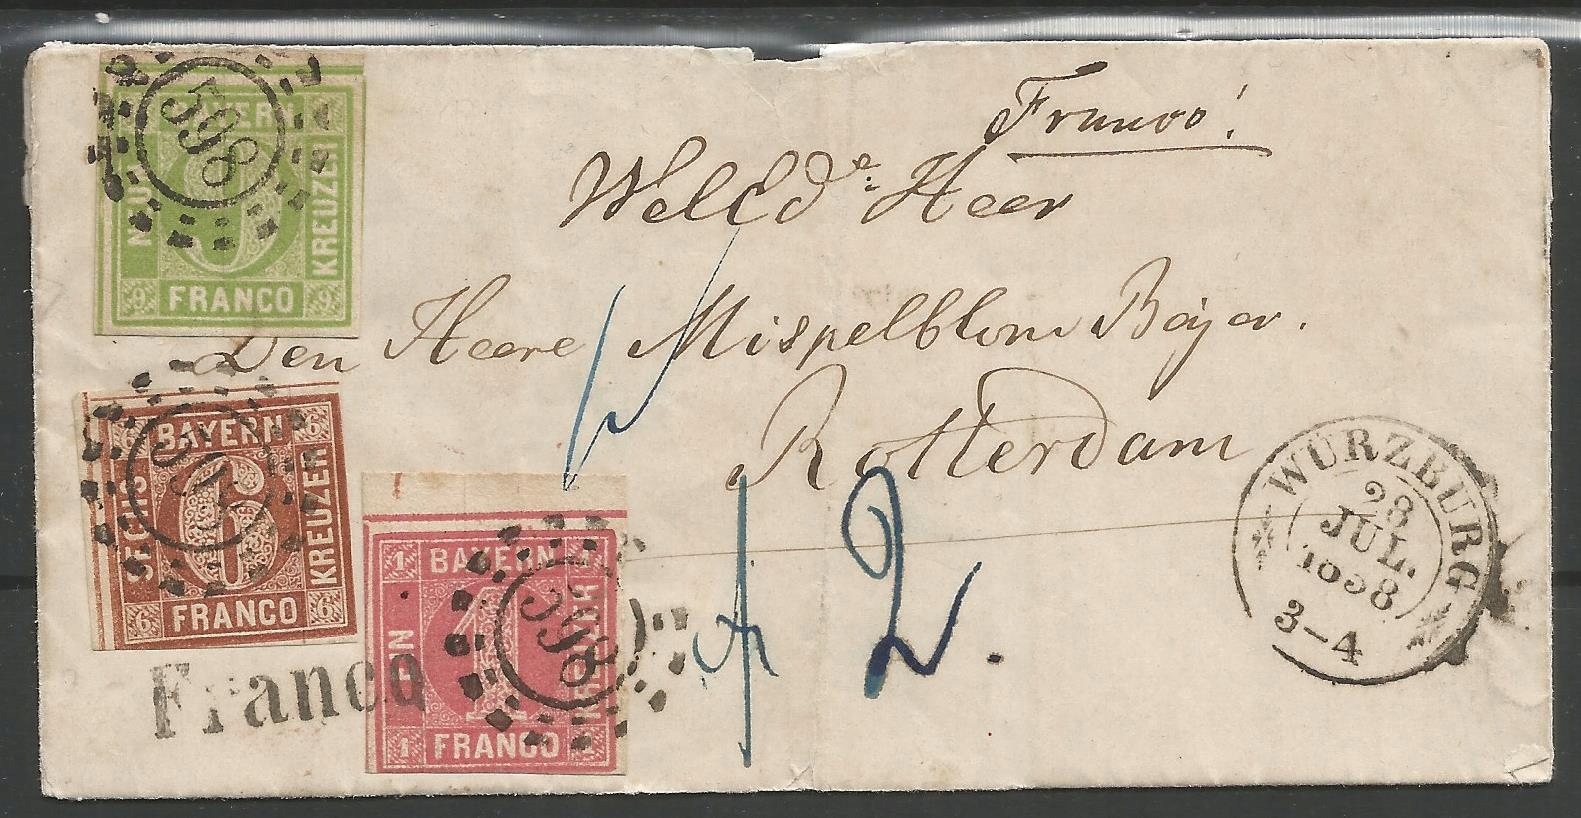 Franco!
WelEd^e: Heer
Den Heere Mispelblom Beijer.
Rotterdam
2.
BAYERN
NEUN
KREUZER
FRANCO
9 9
598
6 BAYERN 6
SECHS
6
KREUZER
6 FRANCO 6
598
1 BAYERN
EIN
1
KREUZER
1 FRANCO 1
598
Franco
WÜRZBURG
28
JUL.
1858
3-4